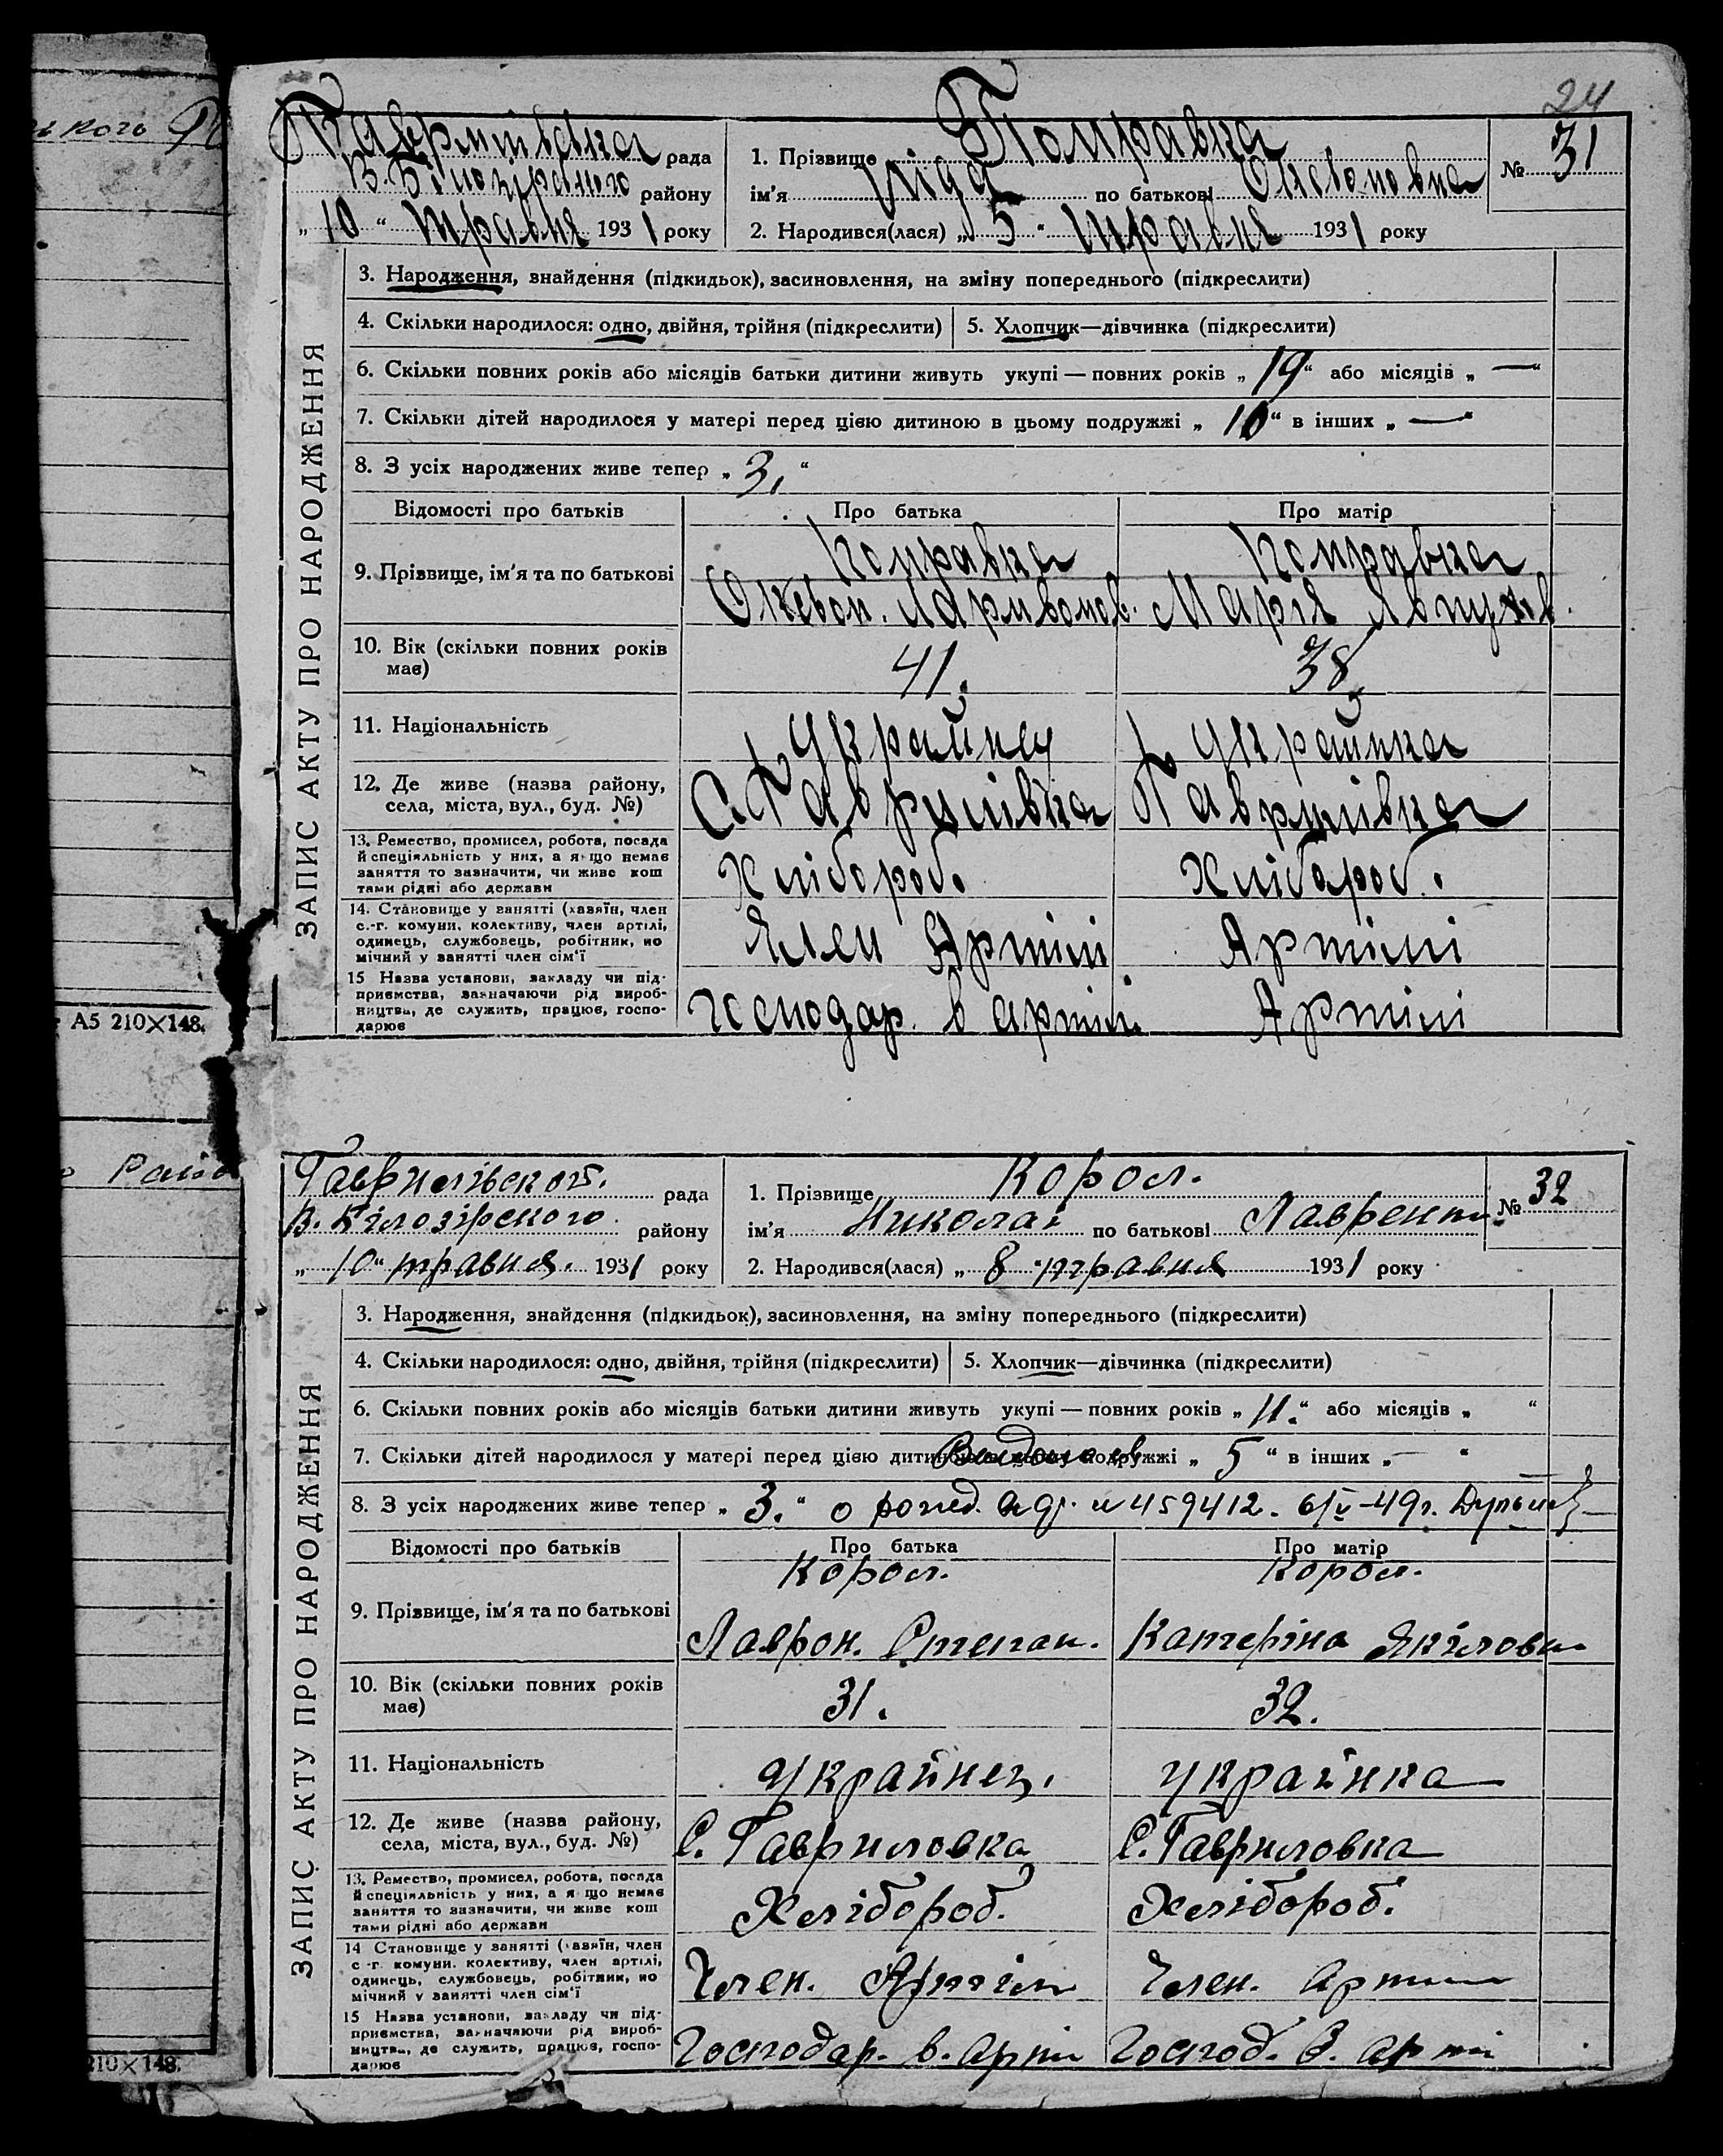 ького
А5 210×148.
о Рай
210×148.
24
Гаврилівська рада
В. Білозірського району
„10" травня 1931 року
1. Прізвище Поправка
ім'я Ліда по батькові
2. Народився(лася) „5" травня 1931 року
№ 31
ЗАПИС АКТУ ПРО НАРОДЖЕННЯ
3. Народження, знайдення (підкидьок), засиновлення, на зміну попереднього (підкреслити)
4. Скільки народилося: одно, двійня, трійня (підкреслити) 5. Хлопчик—дівчинка (підкреслити)
6. Скільки повних років або місяців батьки дитини живуть укупі — повних років „19" або місяців „—"
7. Скільки дітей народилося у матері перед цією дитиною в цьому подружжі „10" в інших „—"
8. З усіх народжених живе тепер „3."
Відомості про батьків Про батька Про матір
9. Прізвище, ім'я та по батькові Поправка Поправка
Ларивонов. Марія
10. Вік (скільки повних років має) 41. 38.
11. Національність Украйнец Украйнка
12. Де живе (назва району, села, міста, вул., буд. №) С. Гаврилівка Гаврилівка
13. Ремество, промисел, робота, посада й спеціяльність у них, а якщо немає заняття то зазначити, чи живе коштами рідні або держави Хлібороб. Хлібороб.
14. Становище у занятті (хазяїн, член с.-г. комуни, колективу, член артілі, одинець, службовець, робітник, помічний у занятті член сім'ї Член Артілі Артілі
15 Назва установи, закладу чи підприємства, зазначаючи рід виробництва, де служить, працює, господарює господар. в артілі Артілі
Гаврилівской. рада
В. Білозірского району
„10" травня. 1931 року
1. Прізвище Корол.
ім'я Николай по батькові Лаврент.
2. Народився(лася) „8" травня 1931 року
№ 32
ЗАПИС АКТУ ПРО НАРОДЖЕННЯ
3. Народження, знайдення (підкидьок), засиновлення, на зміну попереднього (підкреслити)
4. Скільки народилося: одно, двійня, трійня (підкреслити) 5. Хлопчик—дівчинка (підкреслити)
6. Скільки повних років або місяців батьки дитини живуть укупі — повних років „11." або місяців „ "
7. Скільки дітей народилося у матері перед цією дитиною в цьому подружжі „5" в інших „—"
8. З усіх народжених живе тепер „3." о рожд. 459412. 6/V-49г.
Відомості про батьків Про батька Про матір
9. Прізвище, ім'я та по батькові Корол. Корол.
Лаврон. Степан. Катеріна Якіловн
10. Вік (скільки повних років має) 31. 32.
11. Національність Украйнец. Украінка
12. Де живе (назва району, села, міста, вул., буд. №) С. Гавриловка С. Гавриловка
13. Ремество, промисел, робота, посада й спеціяльність у них, а якщо немає заняття то зазначити, чи живе коштами рідні або держави Хлібороб. Хлібороб.
14 Становище у занятті (хазяїн, член с-г. комуни, колективу, член артілі, одинець, службовець, робітник, помічний у занятті член сім'ї Член. Артіли Член. Артили
15 Назва установи, закладу чи підприємства, зазначаючи рід виробництва, де служить, працює, господарює Господар. в. арти Господ. в. арти